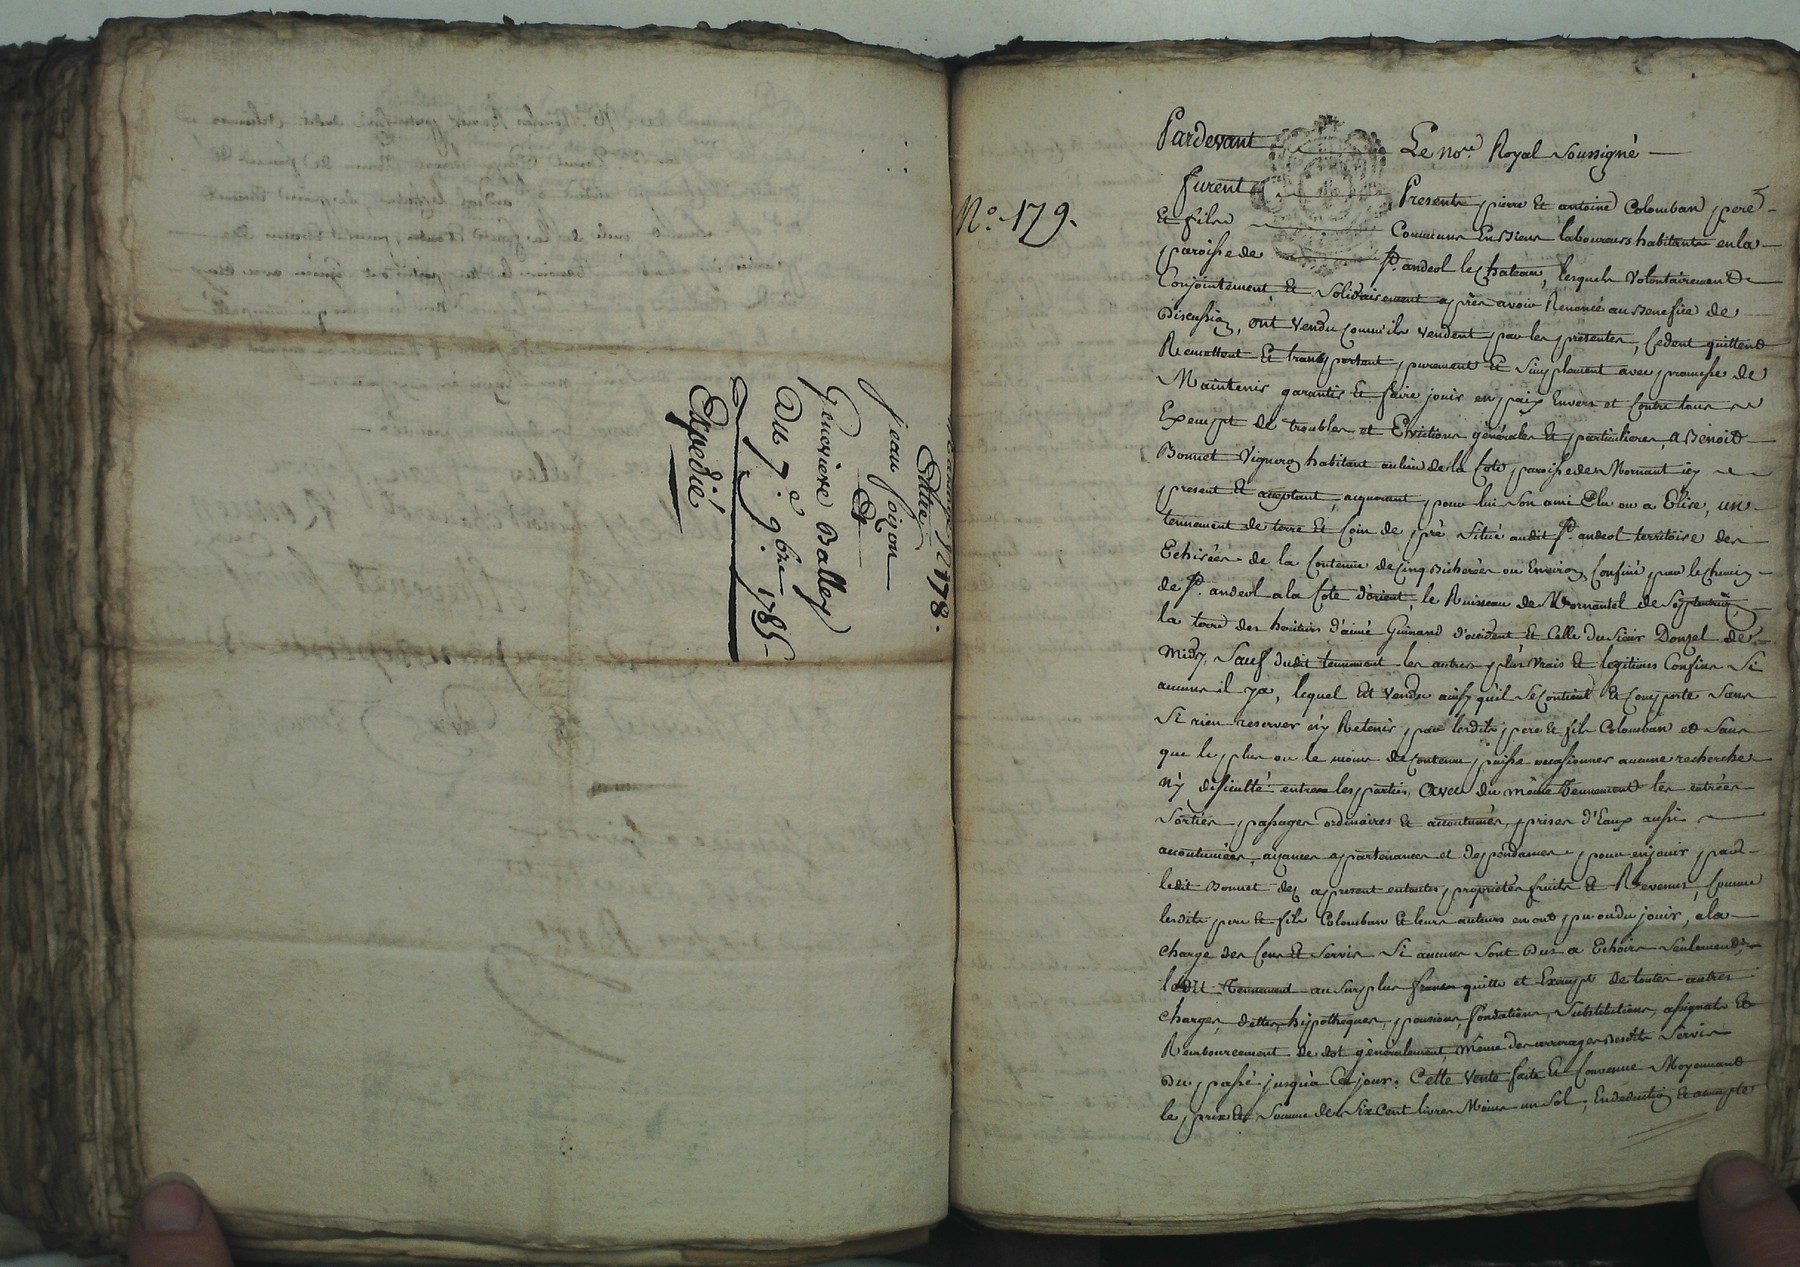 N 178.
Entre
jean joigon
Et
Genevieve Balley
Du 7.e 9.bre 1785
Expedié
N.o 179.
Pardevant Le no.re Royal Soussigné
furent Presents pierre Et antoine Colomban pere
Et fils Communs En biens laboureurs habitants en la
paroisse de St. andeol le Chateau, lesquels volontairement
Conjointement, Et Solidairement après avoir Renoncé au Benefice de
Discussion, ont vendu Comm'ils vendent par les presentes, Cedent quittent
Remettent Et transportent purement Et Simplement avec promesse de
Maintenir garantir Et faire jouir en paix Envers et Contre tous
Exempt de troubles et Evictions générales Et particulieres, a Benoit
Bonnet Vigneron habitant au lieu de la Cote paroisse de Mornant icy
present Et acceptant, acquerant pour lui Son ami Elu ou a Elire, un
tennement de terre Et Coin de pré Situé audit St. andeol territoire des
Echirées de la Contenue de Cinq Bicherées ou Environ, Confiné par le Chemin
de St. andeol a la Cote d'orient, le Ruisseau de Mornantel de Septentrion
la terre des heritiers d'aimé Guinand d'occident Et Celle du Sieur Donzel de
Midy, Sauf dudit tennement les autres plus vrais Et legitimes Confins Si
aucuns il y a, lequel Est vendu ainsy qu'il Se Contient Et Comporte Sans
Si rien reserver n'y Retenir, par lesdits pere Et fils Colomban et Sans
que le plus ou le moins de Contenue puisse occasionner aucune recherche
n'y dificulté entre les parties, avec du même Tennement les entrées
Sorties, passages ordinaires Et accoutumés, prises d'Eaux aussi
accoutumées, aisances appartenances et dependances, pour en jouir par
ledit Bonnet dez apresent en toutes proprietés fruits Et Revenus, Comme
lesdits pere Et fils Colomban Et leurs auteurs en ont pu ou du jouir, a la
charge des Cens Et Servis Si aucuns Sont Dus a Echoir Seulement,
ledit Tennement au Surplus franc quitte et Exempt de toutes autres
charges, dettes, hypotheques, pensions, fondations, Substitutions, assignats Et
Remboursement de dot généralement, même des arrerages desdits Servis
Du passé jusqu'a Ce jour. Cette vente faite Et Convenue Moyennant
le prix Et Somme de Six Cent livres Moins un Sol, En deduction Et acompte